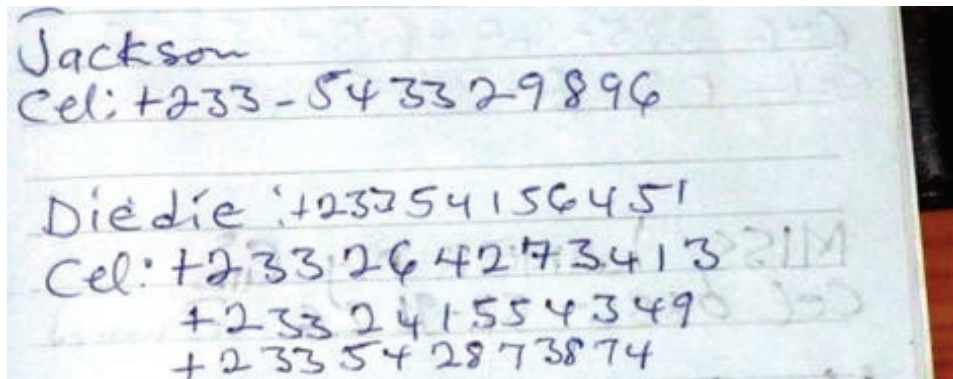 Jackson
Cel: +233-5433329896
Diedie: +233541564451
Cel: +233264273413
+233241554349
+233542873874